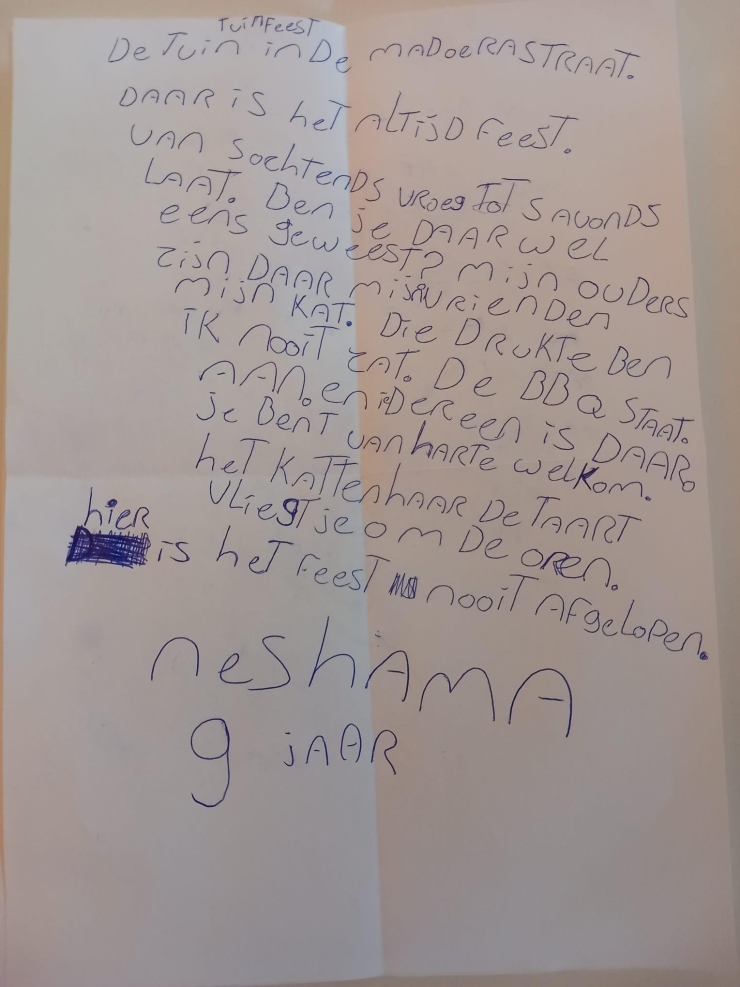 TuinFeesT
De Tuin in De mADoeRASTRAAT.
DAAR is heT ALTijD FeesT.
VAn SochTenDS vRoeg ToT S AvonDS
LAAT. Ben je DAAR weL
eens geweesT? mijn ouDeRS
zijn DAAR mijn vRienDen
mijn KAT. Die DRuKTe Ben
iK nooiT zAT. De BBQ STAAT.
AAn. en ieDeReen is DAAR.
je BenT vAn hARTe weLKom.
heT KATTenhAAR De TAART
VLiegT je om De oRen.
hier
is heT FeesT nooiT AFgeLoPen.
neShAmA
9 jAAR